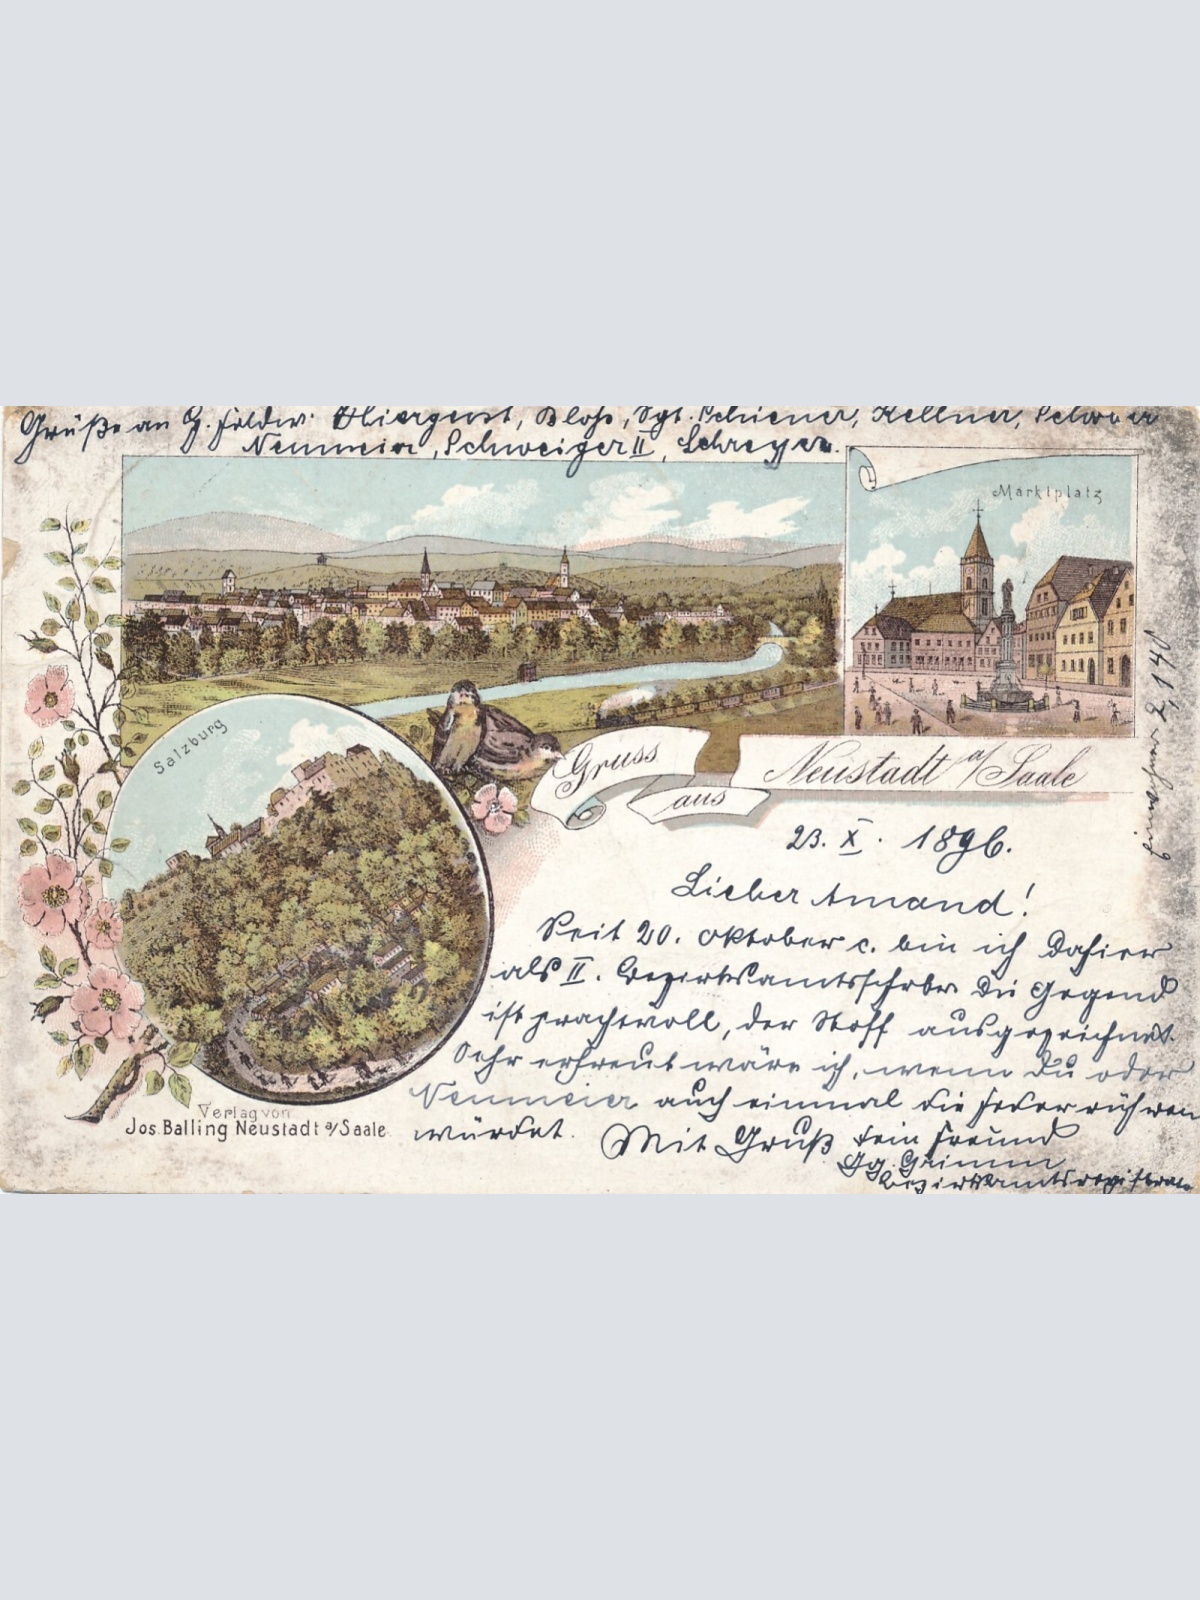 Grüße an G. Feldw. Obergeist, Bloß, Sgt. Schiener, Kellner,
Neumeier, Schweiger II, Schreyer.
Marktplatz
Salzburg
Gruss
aus
Neustadt a/Saale
23. X. 1896.
Lieber Amand!
Seit 20. Oktober c. bin ich dahier
als II. Bezirksamtsschrbr. Die Gegend
ist prachtvoll, der Stoff ausgezeichnet.
Sehr erfreut wäre ich, wenn Du oder
Neumeier auch einmal die Feder rühren
würdet. Mit Gruß Dein Freund
Gg. Grimm
Verlag von
Jos. Balling Neustadt a/Saale.